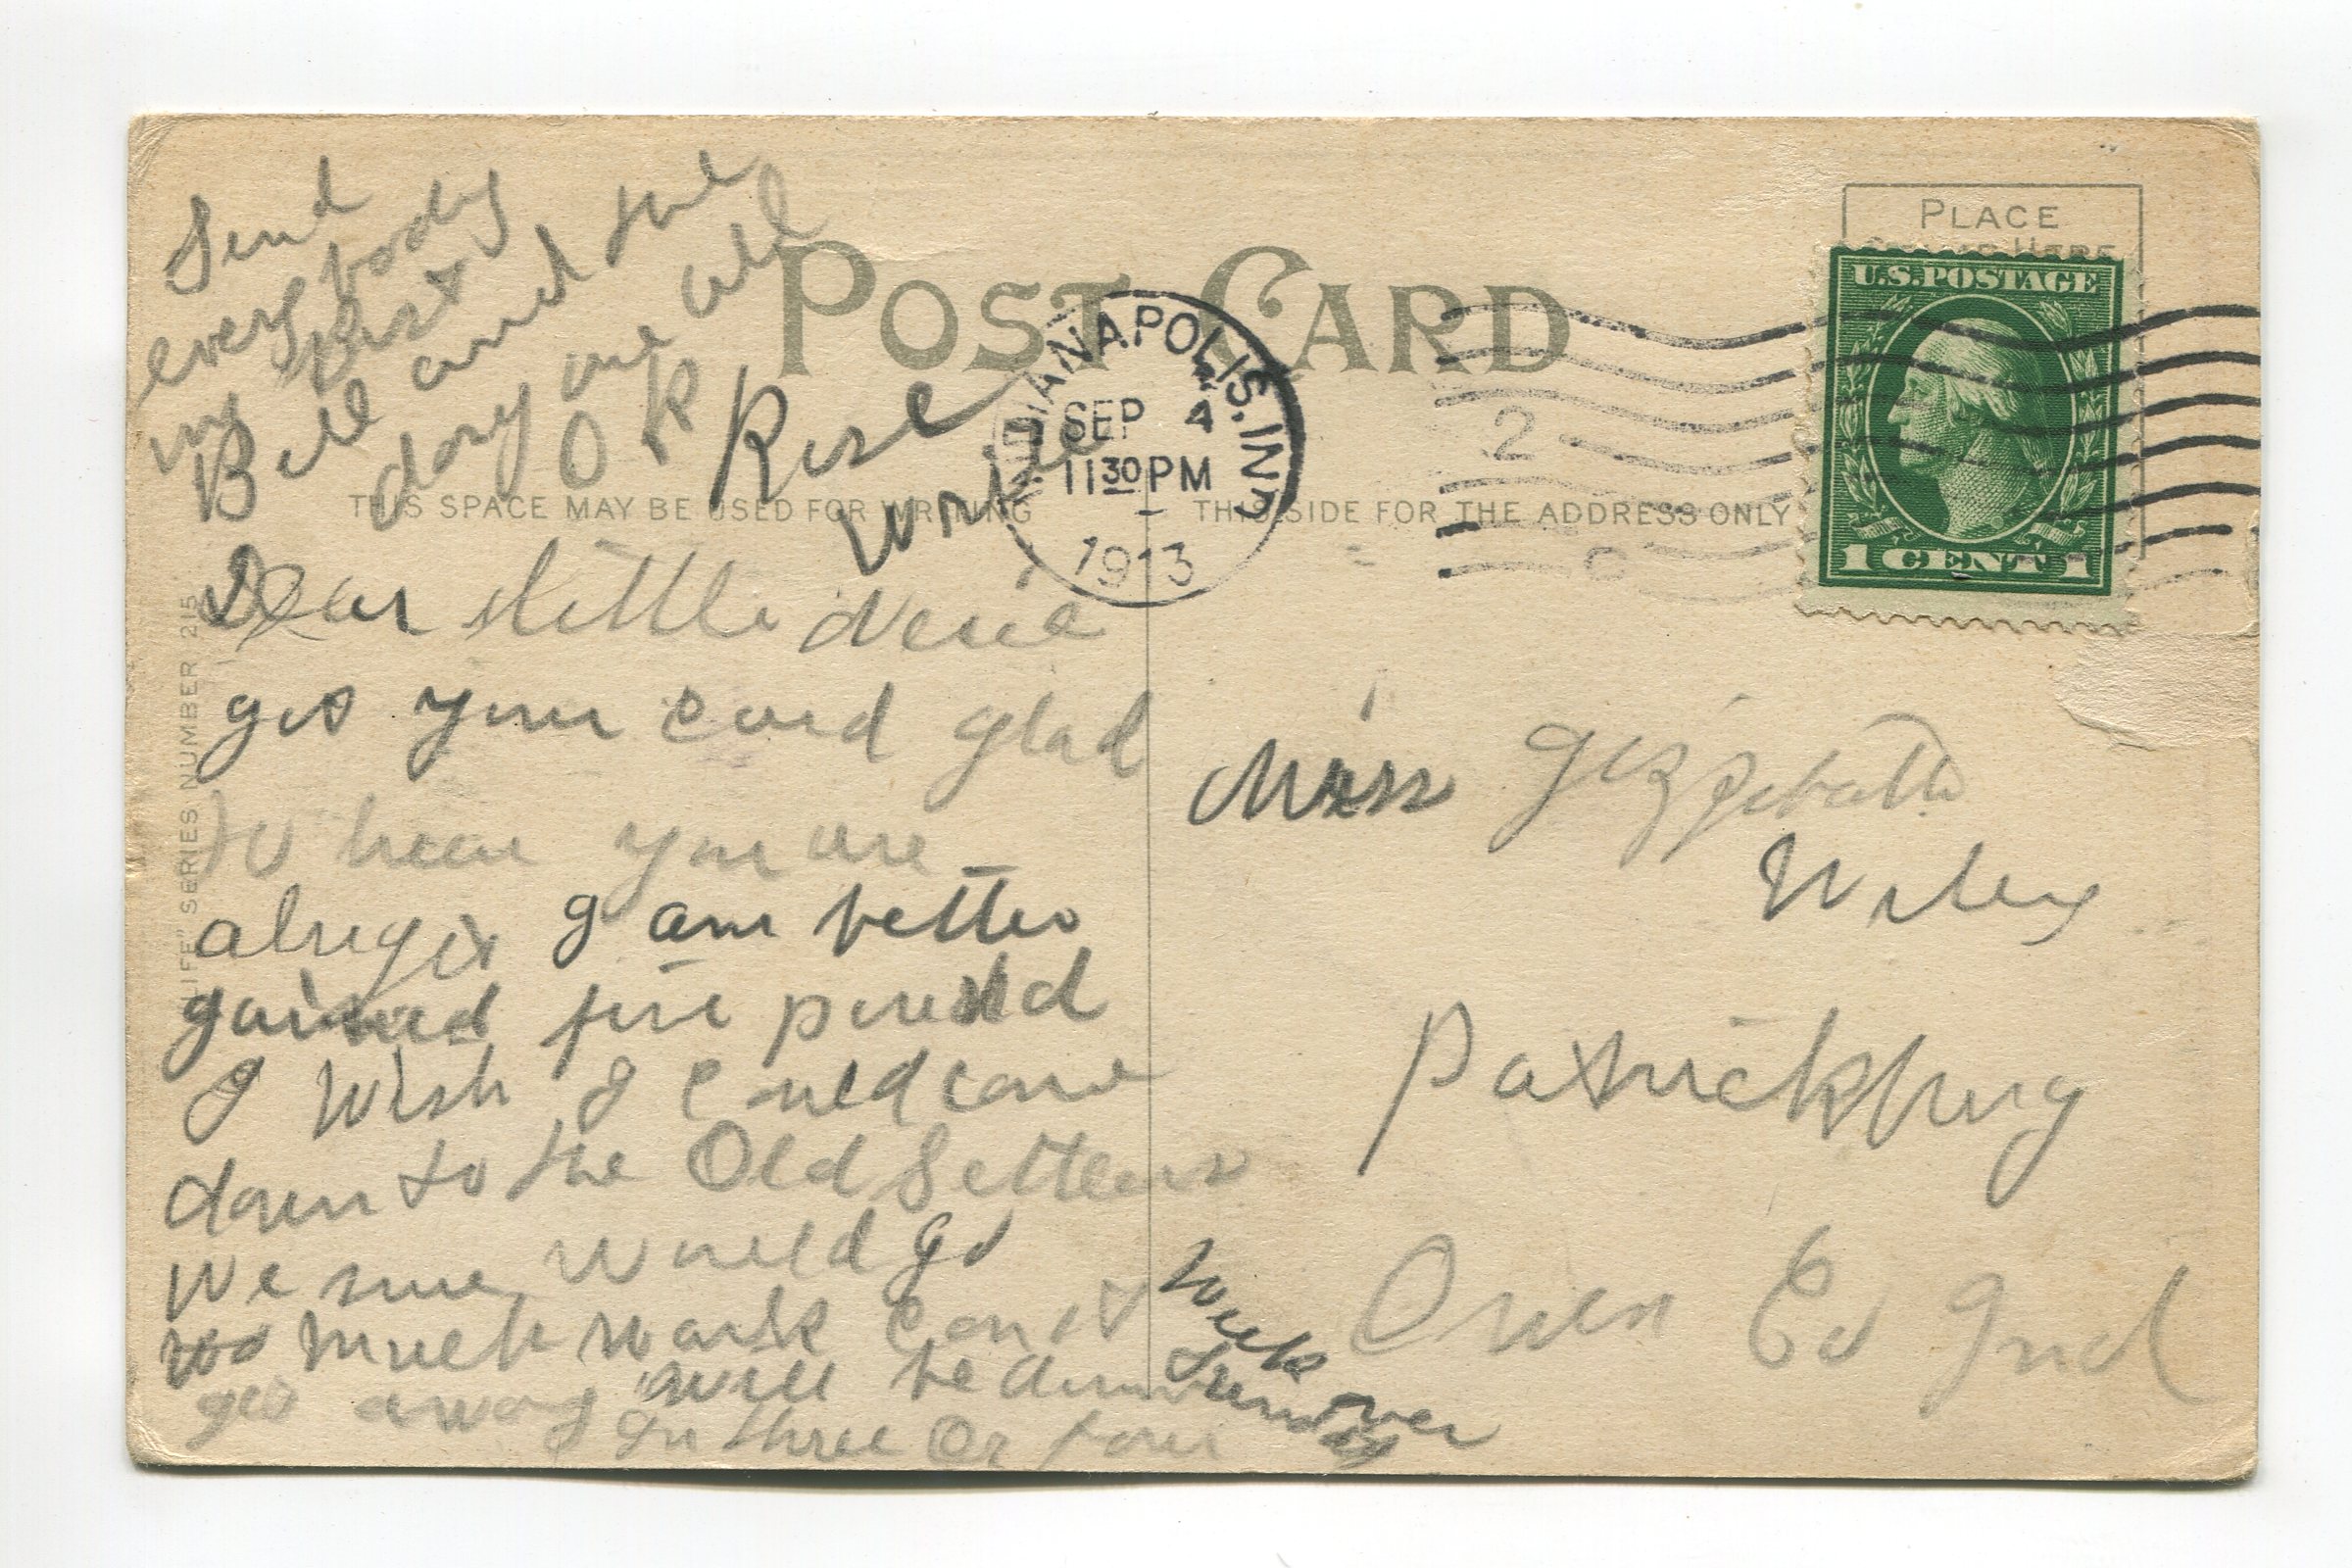 POST CARD
PLACE
STAMP HERE
U.S. POSTAGE
1 CENT 1
INDIANAPOLIS, IND
SEP 4
11 30 PM
1913
2
C
THIS SPACE MAY BE USED FOR WRITING
THIS SIDE FOR THE ADDRESS ONLY
"LIFE" SERIES NUMBER 215
Dear little
got your card glad
to hear you are
I am better
gained five pound
I wish I could come
down to the Old Settlers
We sure would go
too much work can't
get away will be down
In three or four
week over
Sunday
Send
every body
my best
Bill and Joe
dory are all
O K
Rose
Write
Miss Gizzebath
Wiley
Patrickburg
Owen Co Ind